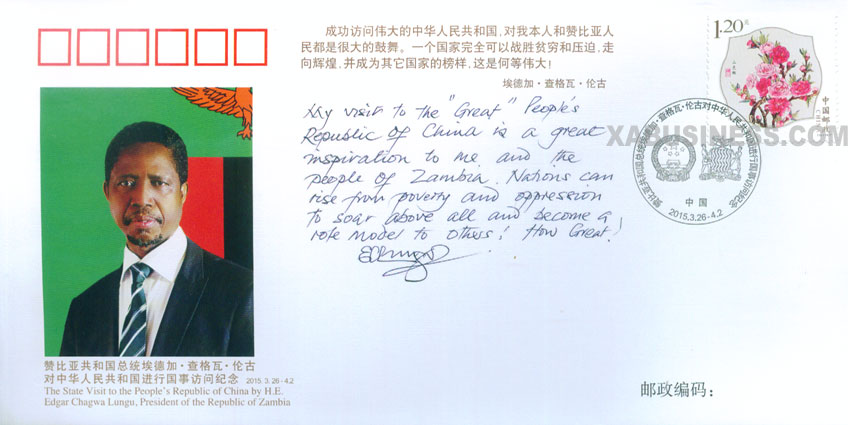 成功访问伟大的中华人民共和国，对我本人和赞比亚人
民都是很大的鼓舞。一个国家完全可以战胜贫穷和压迫，走
向辉煌，并成为其它国家的榜样，这是何等伟大！
埃德加·查格瓦·伦古
My visit to the "Great" People's
Republic of China is a great
inspiration to me and the
people of Zambia. Nations can
rise from poverty and oppression
to soar above all and become a
role model to others! How Great!
1.20元
中国邮政
XABUSINESS.COM
赞比亚共和国总统埃德加·查格瓦·伦古对中华人民共和国进行国事访问纪念
中国
2015.3.26-4.2
赞比亚共和国总统埃德加·查格瓦·伦古
对中华人民共和国进行国事访问纪念 2015.3.26-4.2
The State Visit to the People's Republic of China by H.E.
Edgar Chagwa Lungu, President of the Republic of Zambia
邮政编码：